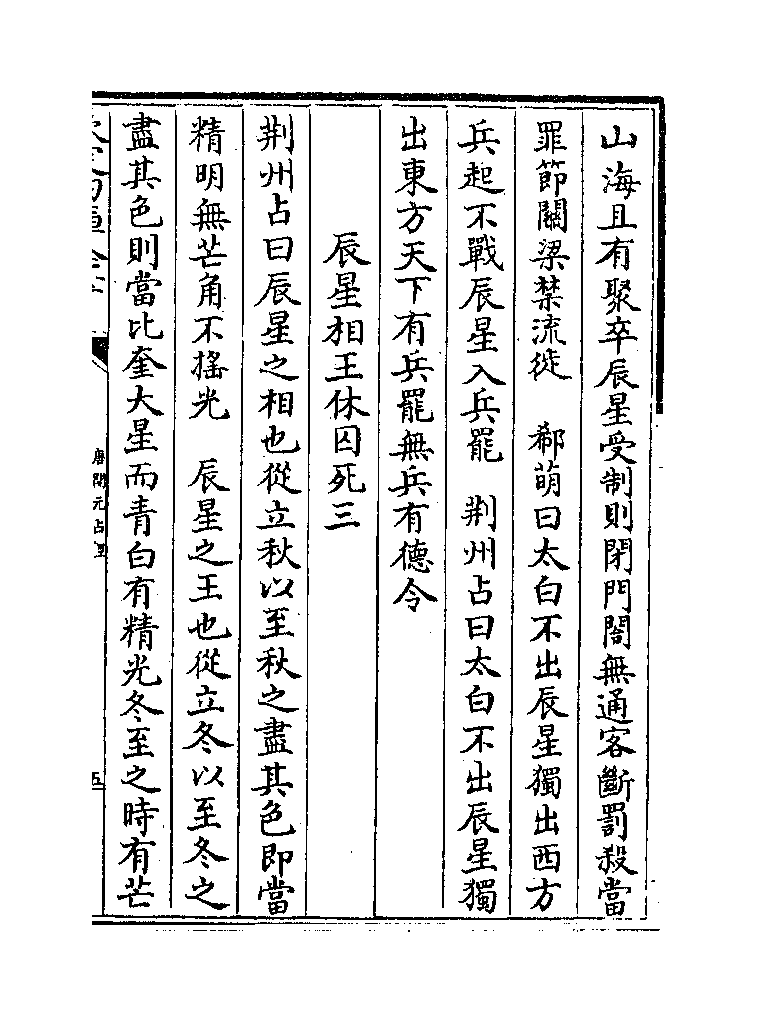 山海且有聚卒辰星受制則閉門閭無通客斷罰殺當
罪節關梁禁流徙　郗萌曰太白不出辰星獨出西方
兵起不戰辰星入兵罷　荆州占曰太白不出辰星獨
出東方天下有兵罷無兵有德令
辰星相王休囚死三
荆州占曰辰星之相也從立秋以至秋之盡其色即當
精明無芒角不搖光　辰星之王也從立冬以至冬之
盡其色則當比奎大星而青白有精光冬至之時有芒
唐開元占經
五